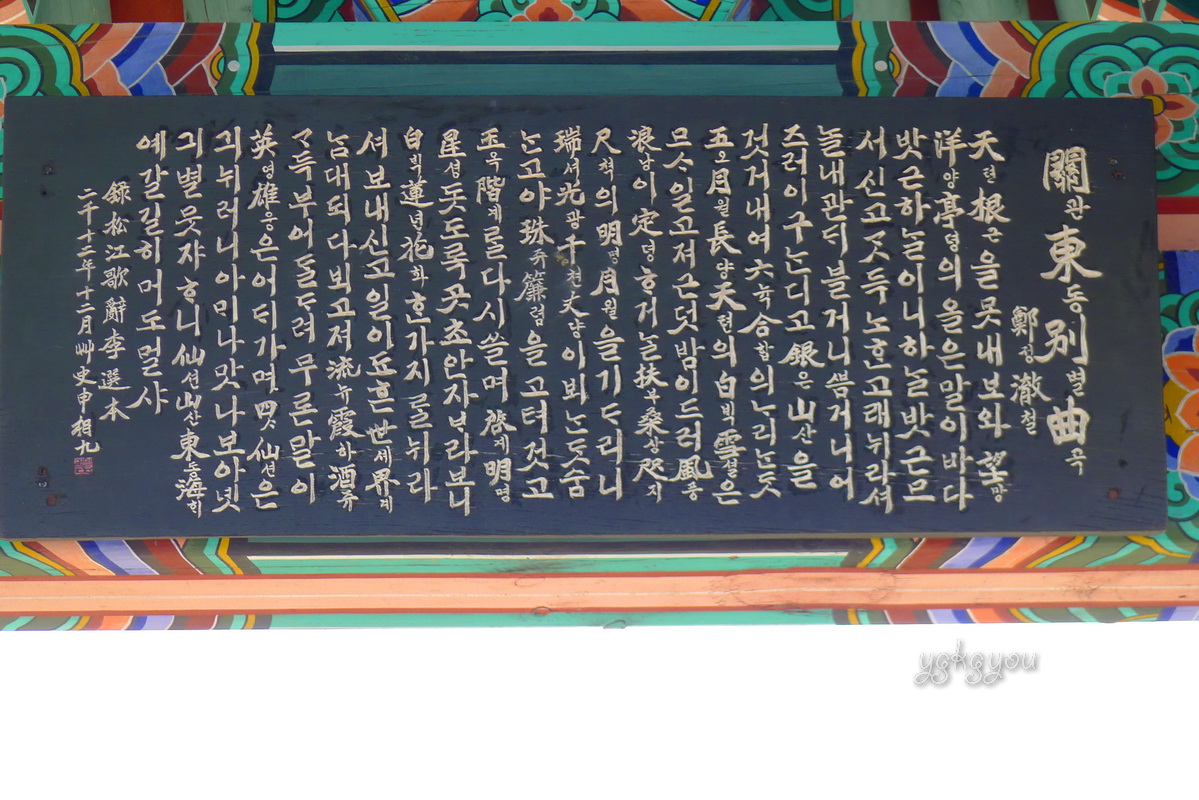 關관東동別별曲곡
鄭정澈철
天텬根근을못내보와望망
洋양亭뎡의올은말이바다
밧근하놀이니하놀밧근므
서신고ᄌᆞ득노ᄒᆞᆫ고래뉘라셔
놀내관ᄃᆡ블거니ᄲᅳᆷ거니어
즈러이구ᄂᆞᆫ디고銀은山산을
것거내여六뉵合합의ᄂᆞ리ᄂᆞᆫᄃᆞᆺ
五오月월長댱天텬의白ᄇᆡᆨ雪셜은
므ᄉᆞ일고져근덧밤이드러風풍
浪낭이定뎡ᄒᆞ거ᄂᆞᆯ扶부桑상咫지
尺쳑의明명月월을기ᄃᆞ리니
瑞셔光광千쳔丈댱이뵈ᄂᆞᆫᄃᆞᆺ숨
ᄂᆞᆫ고야珠쥬簾렴을고텨것고
玉옥階계ᄅᆞᆯ다시쓸며啓계明명
星셩돗도록곳초안자ᄇᆞ라보니
白ᄇᆡᆨ蓮년花화ᄒᆞᆫ가지ᄅᆞᆯ뉘라
셔보내신고일이됴흔世셰界계
ᄂᆞᆷ대되다뵈고져流뉴霞하酒쥬
ᄀᆞ득부어ᄃᆞᆯᄃᆞ려무론말이
英영雄웅은어ᄃᆡ가며四ᄉᆞ仙션은
긔뉘러니아ᄆᆡ나맛나보아녯
긔별뭇쟈ᄒᆞ니仙션山산東동海ᄒᆡ
예갈길히머도멀샤
錄松江歌辭李選本
二千十二年十二月艸史申相九
ygkgyou